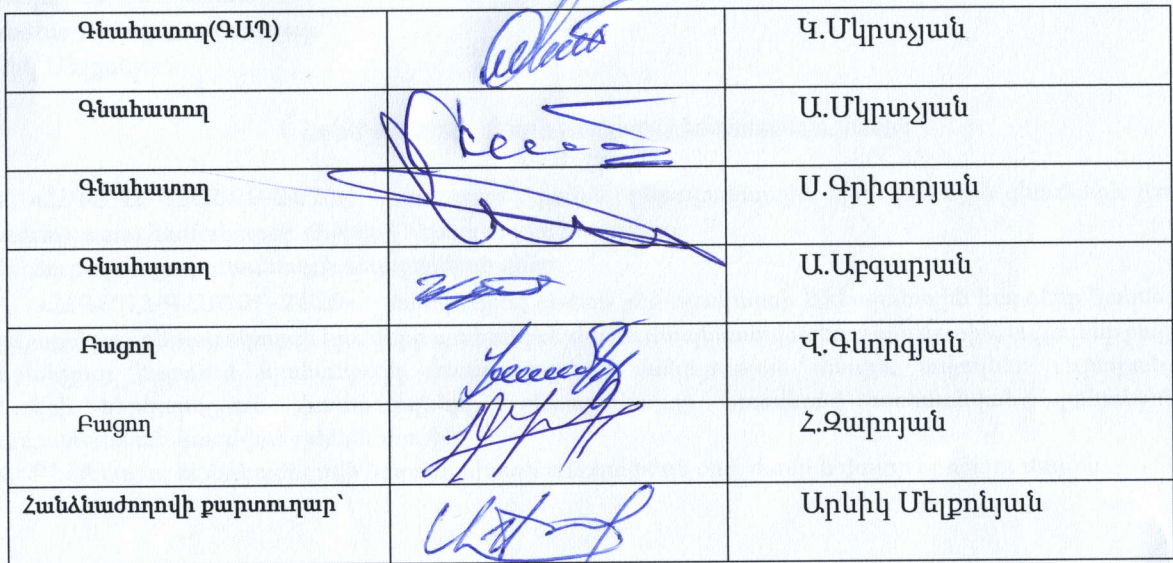 Գնահատող(ԳԱՊ) Գ.Մկրտչյան
Գնահատող Ա.Մկրտչյան
Գնահատող Ս.Գրիգորյան
Գնահատող Ա.Աբգարյան
Բացող Վ.Գևորգյան
Բացող Հ.Զարոյան
Հանձնաժողովի քարտուղար՝ Արևիկ Մելքոնյան